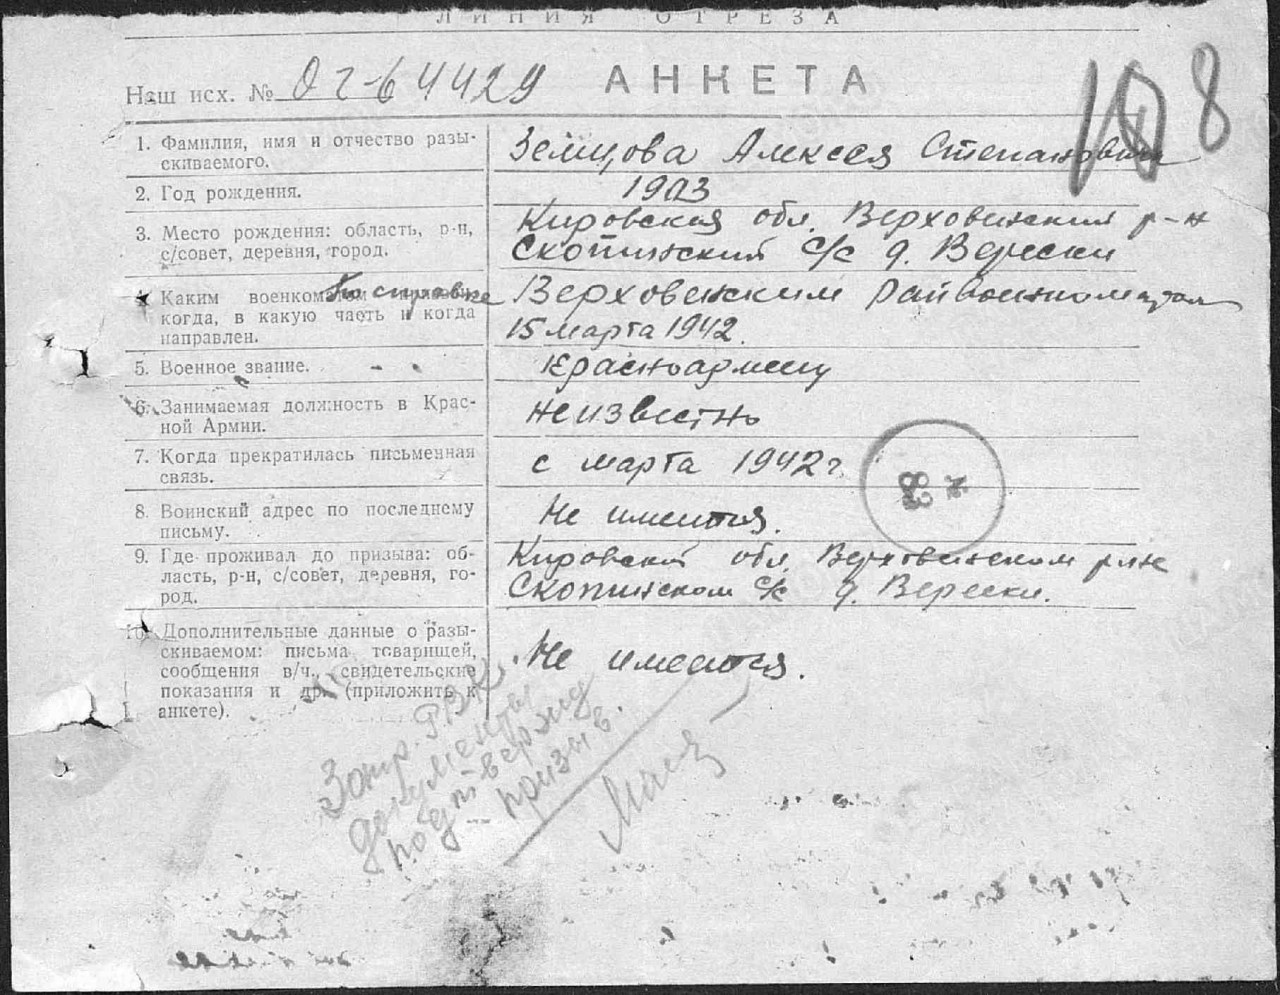 ЛИНИЯ ОТРЕЗА
Наш исх. № 02-64429 АНКЕТА
108
1. Фамилия, имя и отчество разы-
скиваемого.
Земцова Алексея Степановича
2. Год рождения.
1903
3. Место рождения: область, р-н,
с/совет, деревня, город.
Кировская обл. Верховинский р-н
Скопинский с/с д. Верески
4. Каким военкоматом призван,
когда, в какую часть и когда
направлен.
По справке Верховинским Райвоенкоматом
15 марта 1942.
5. Военное звание.
Красноармеец
6. Занимаемая должность в Крас-
ной Армии.
неизвестно
7. Когда прекратилась письменная
связь.
с марта 1942 г.
8. Воинский адрес по последнему
письму.
Не имеется.
9. Где проживал до призыва: об-
ласть, р-н, с/совет, деревня, го-
род.
Кировской обл. Верховинском р-не
Скопинском с/с д. Верески.
10. Дополнительные данные о разы-
скиваемом: письма товарищей,
сообщения в/ч., свидетельские
показания и др. (приложить к
анкете).
Не имеется.
Запр. РВК
документы
подтвержд
призыв.